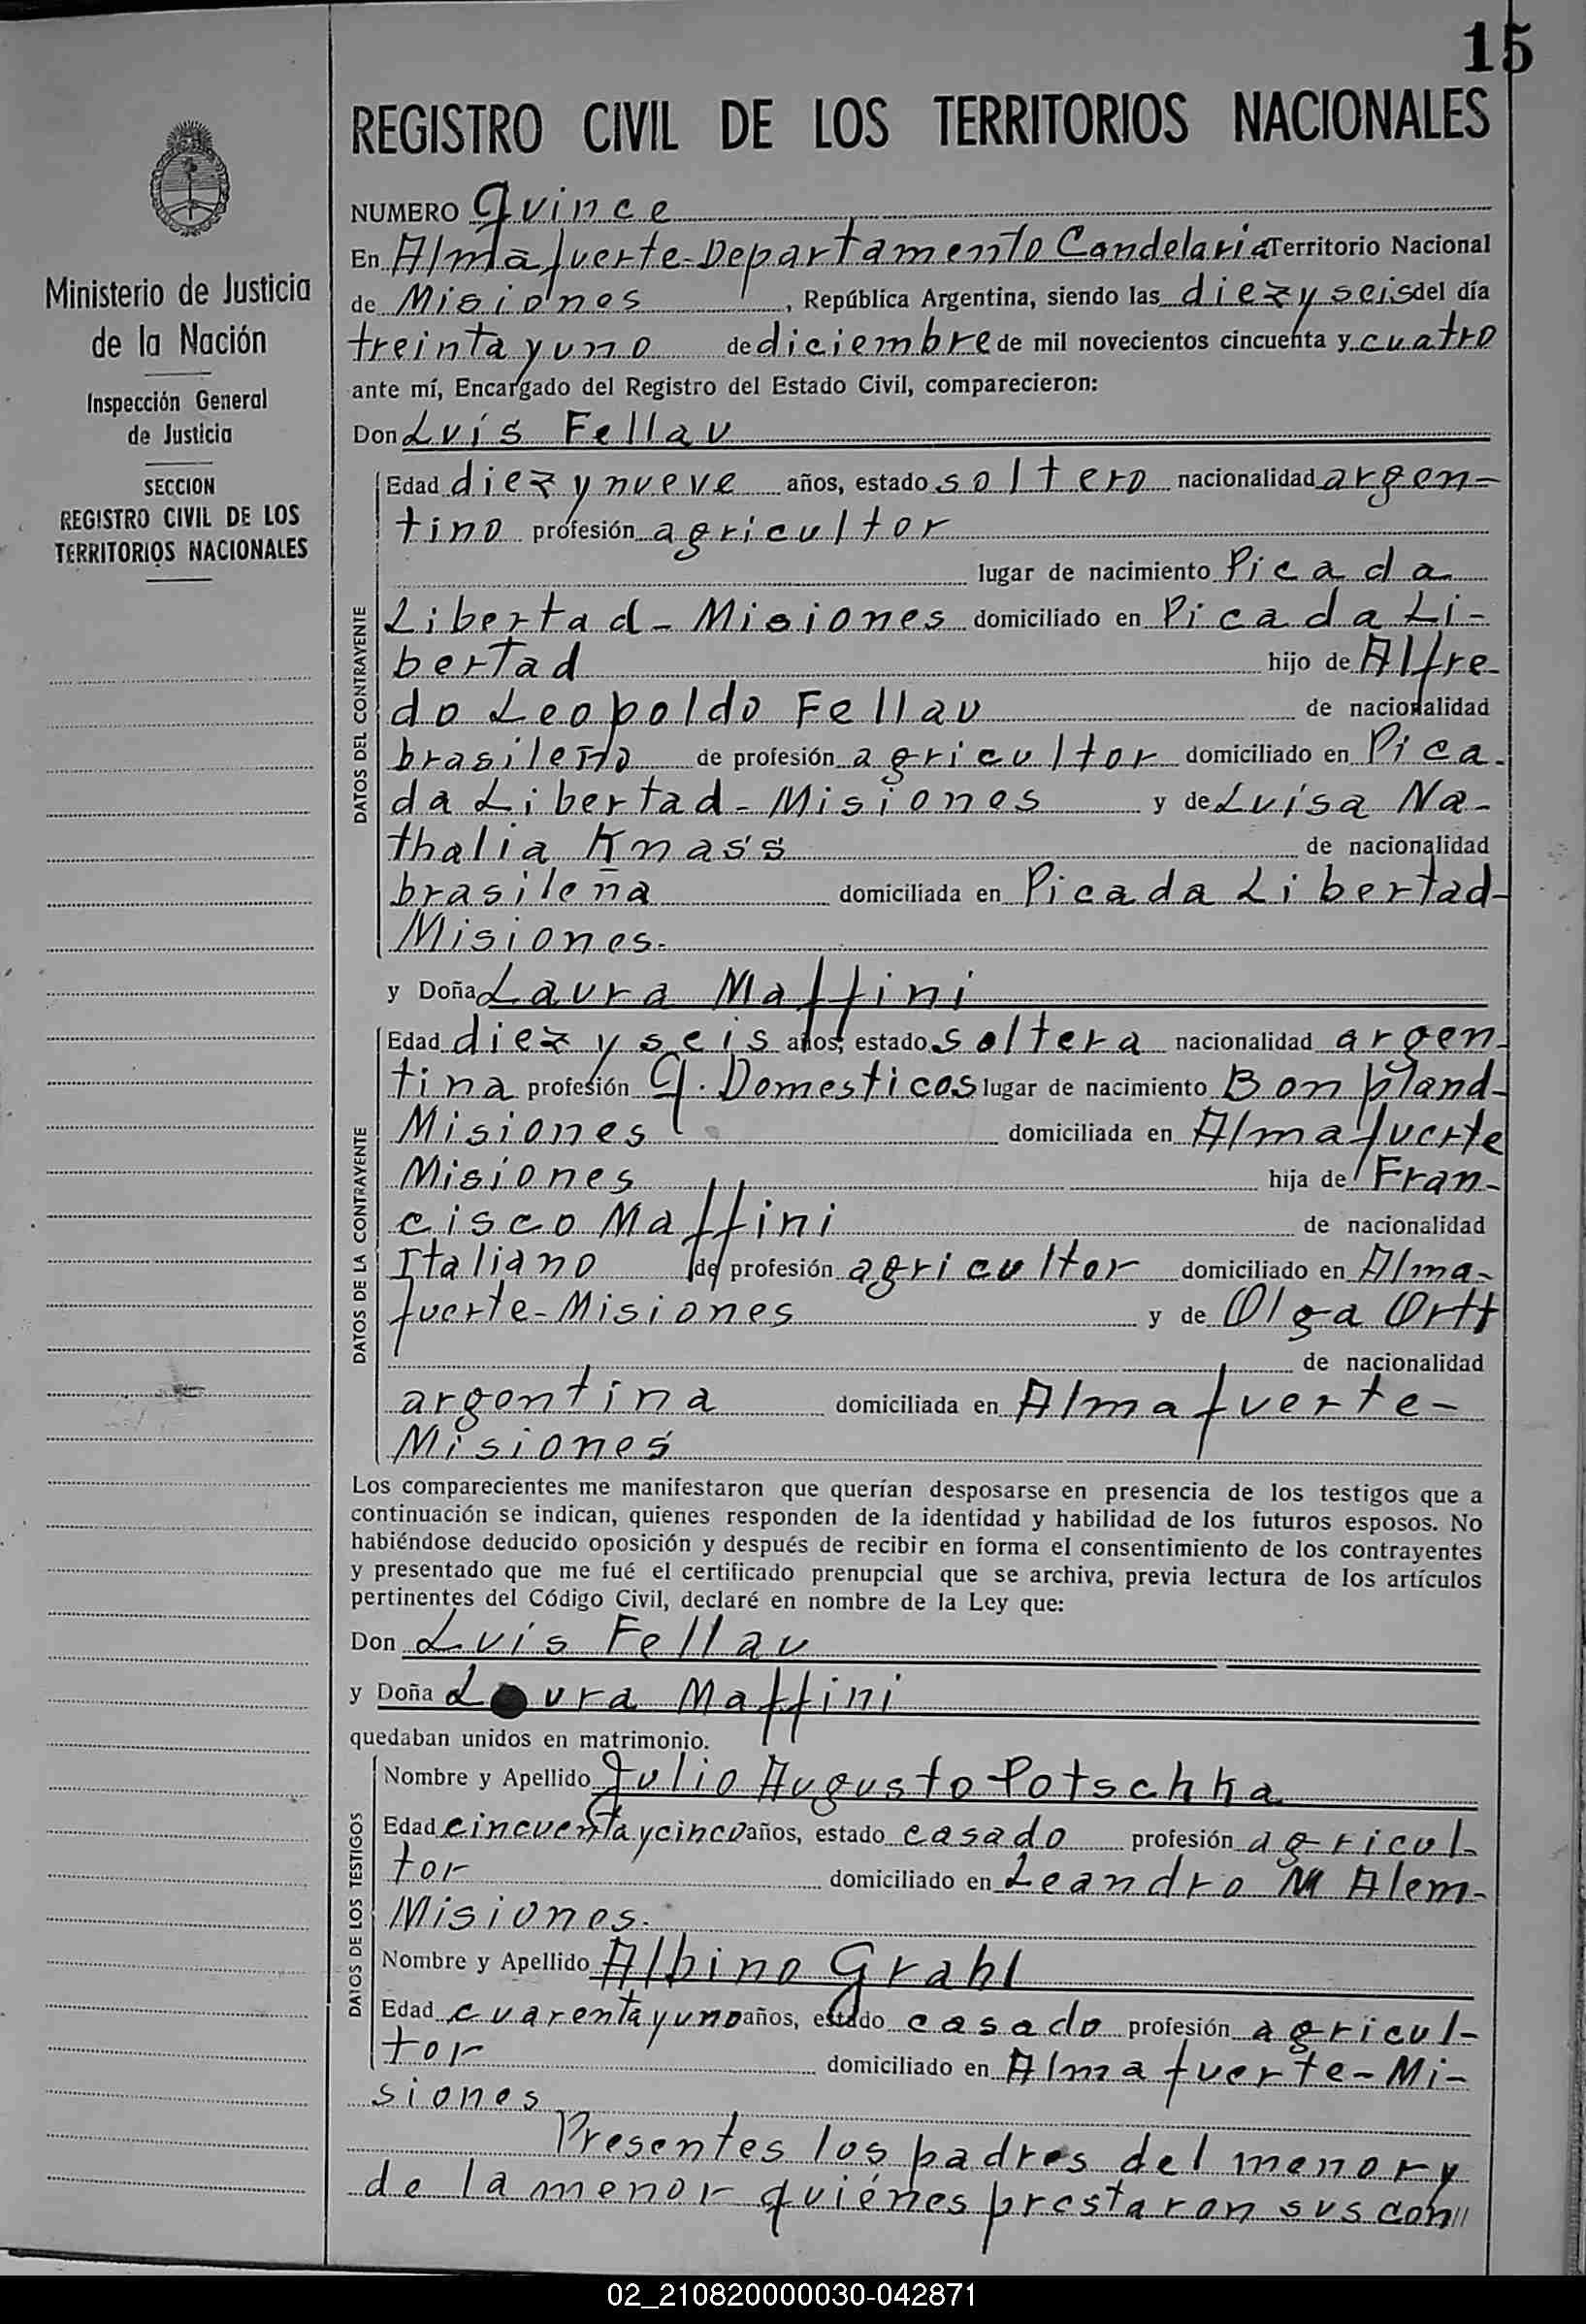 15
REGISTRO CIVIL DE LOS TERRITORIOS NACIONALES
Ministerio de Justicia
de la Nación
Inspección General
de Justicia
SECCION
REGISTRO CIVIL DE LOS
TERRITORIOS NACIONALES
NUMERO Quince
En Almafuerte-Departamento Candelaria Territorio Nacional
de Misiones, República Argentina, siendo las diez y seis del día
treinta y uno de diciembre de mil novecientos cincuenta y cuatro
ante mí, Encargado del Registro del Estado Civil, comparecieron:
Don Luís Fellau
DATOS DEL CONTRAYENTE
Edad diez y nueve años, estado soltero nacionalidad argen-
tino profesión agricultor
lugar de nacimiento Picada
Libertad - Misiones domiciliado en Picada Li-
bertad hijo de Alfre-
do Leopoldo Fellau de nacionalidad
brasileño de profesión agricultor domiciliado en Pica-
da Libertad - Misiones y de Luísa Na-
thalia Knass de nacionalidad
brasileña domiciliada en Picada Libertad-
Misiones.
y Doña Laura Maffini
DATOS DE LA CONTRAYENTE
Edad diez y seis años, estado soltera nacionalidad argen-
tina profesión Q. Domesticos lugar de nacimiento Bonpland-
Misiones domiciliada en Almafuerte
Misiones hija de Fran-
cisco Maffini de nacionalidad
Italiano de profesión agricultor domiciliado en Alma-
fuerte-Misiones y de Olga Ortt
de nacionalidad
argentina domiciliada en Almafuerte-
Misiones
Los comparecientes me manifestaron que querían desposarse en presencia de los testigos que a
continuación se indican, quienes responden de la identidad y habilidad de los futuros esposos. No
habiéndose deducido oposición y después de recibir en forma el consentimiento de los contrayentes
y presentado que me fué el certificado prenupcial que se archiva, previa lectura de los artículos
pertinentes del Código Civil, declaré en nombre de la Ley que:
Don Luís Fellau
y Doña Laura Maffini
quedaban unidos en matrimonio.
DATOS DE LOS TESTIGOS
Nombre y Apellido Julio Augusto Potschka
Edad cincuenta y cinco años, estado casado profesión agricul-
tor domiciliado en Leandro M Alem-
Misiones.
Nombre y Apellido Albino Grahl
Edad cuarenta y uno años, estado casado profesión agricul-
tor domiciliado en Almafuerte-Mi-
siones
Presentes los padres del menor y
de la menor quiénes prestaron sus con//
02_210820000030-042871